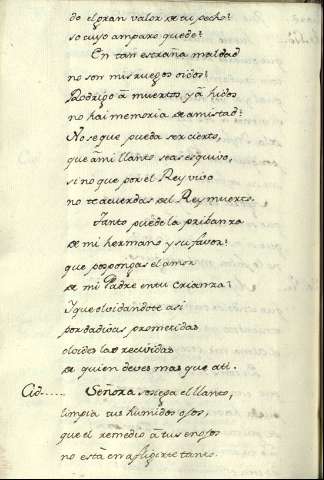 do el gran valor de tu pecho?
so cuyo amparo quede?
En tan estraña maldad
no son mis ruegos oidos?
Rodrigo â muertos, y â hidos
no hai memoria de amistad?
No se que pueda ser cierto,
que â mi llanto seas esquivo,
si no que por el Rey vivo
no te acuerdas del Rey muerto.
Tanto puede la pribanza
de mi hermano y su favor?
que pospongas el amor
de mi Padre en tu crianza?
Y que olvidandote asi
por dadivas prometidas
olvides las recividas
de quien deves mas que âtî.
Cid..... Señora sosiega el llanto,
limpia tus humidos ojos,
que el remedio â tus enojos
no està en afligirte tanto.